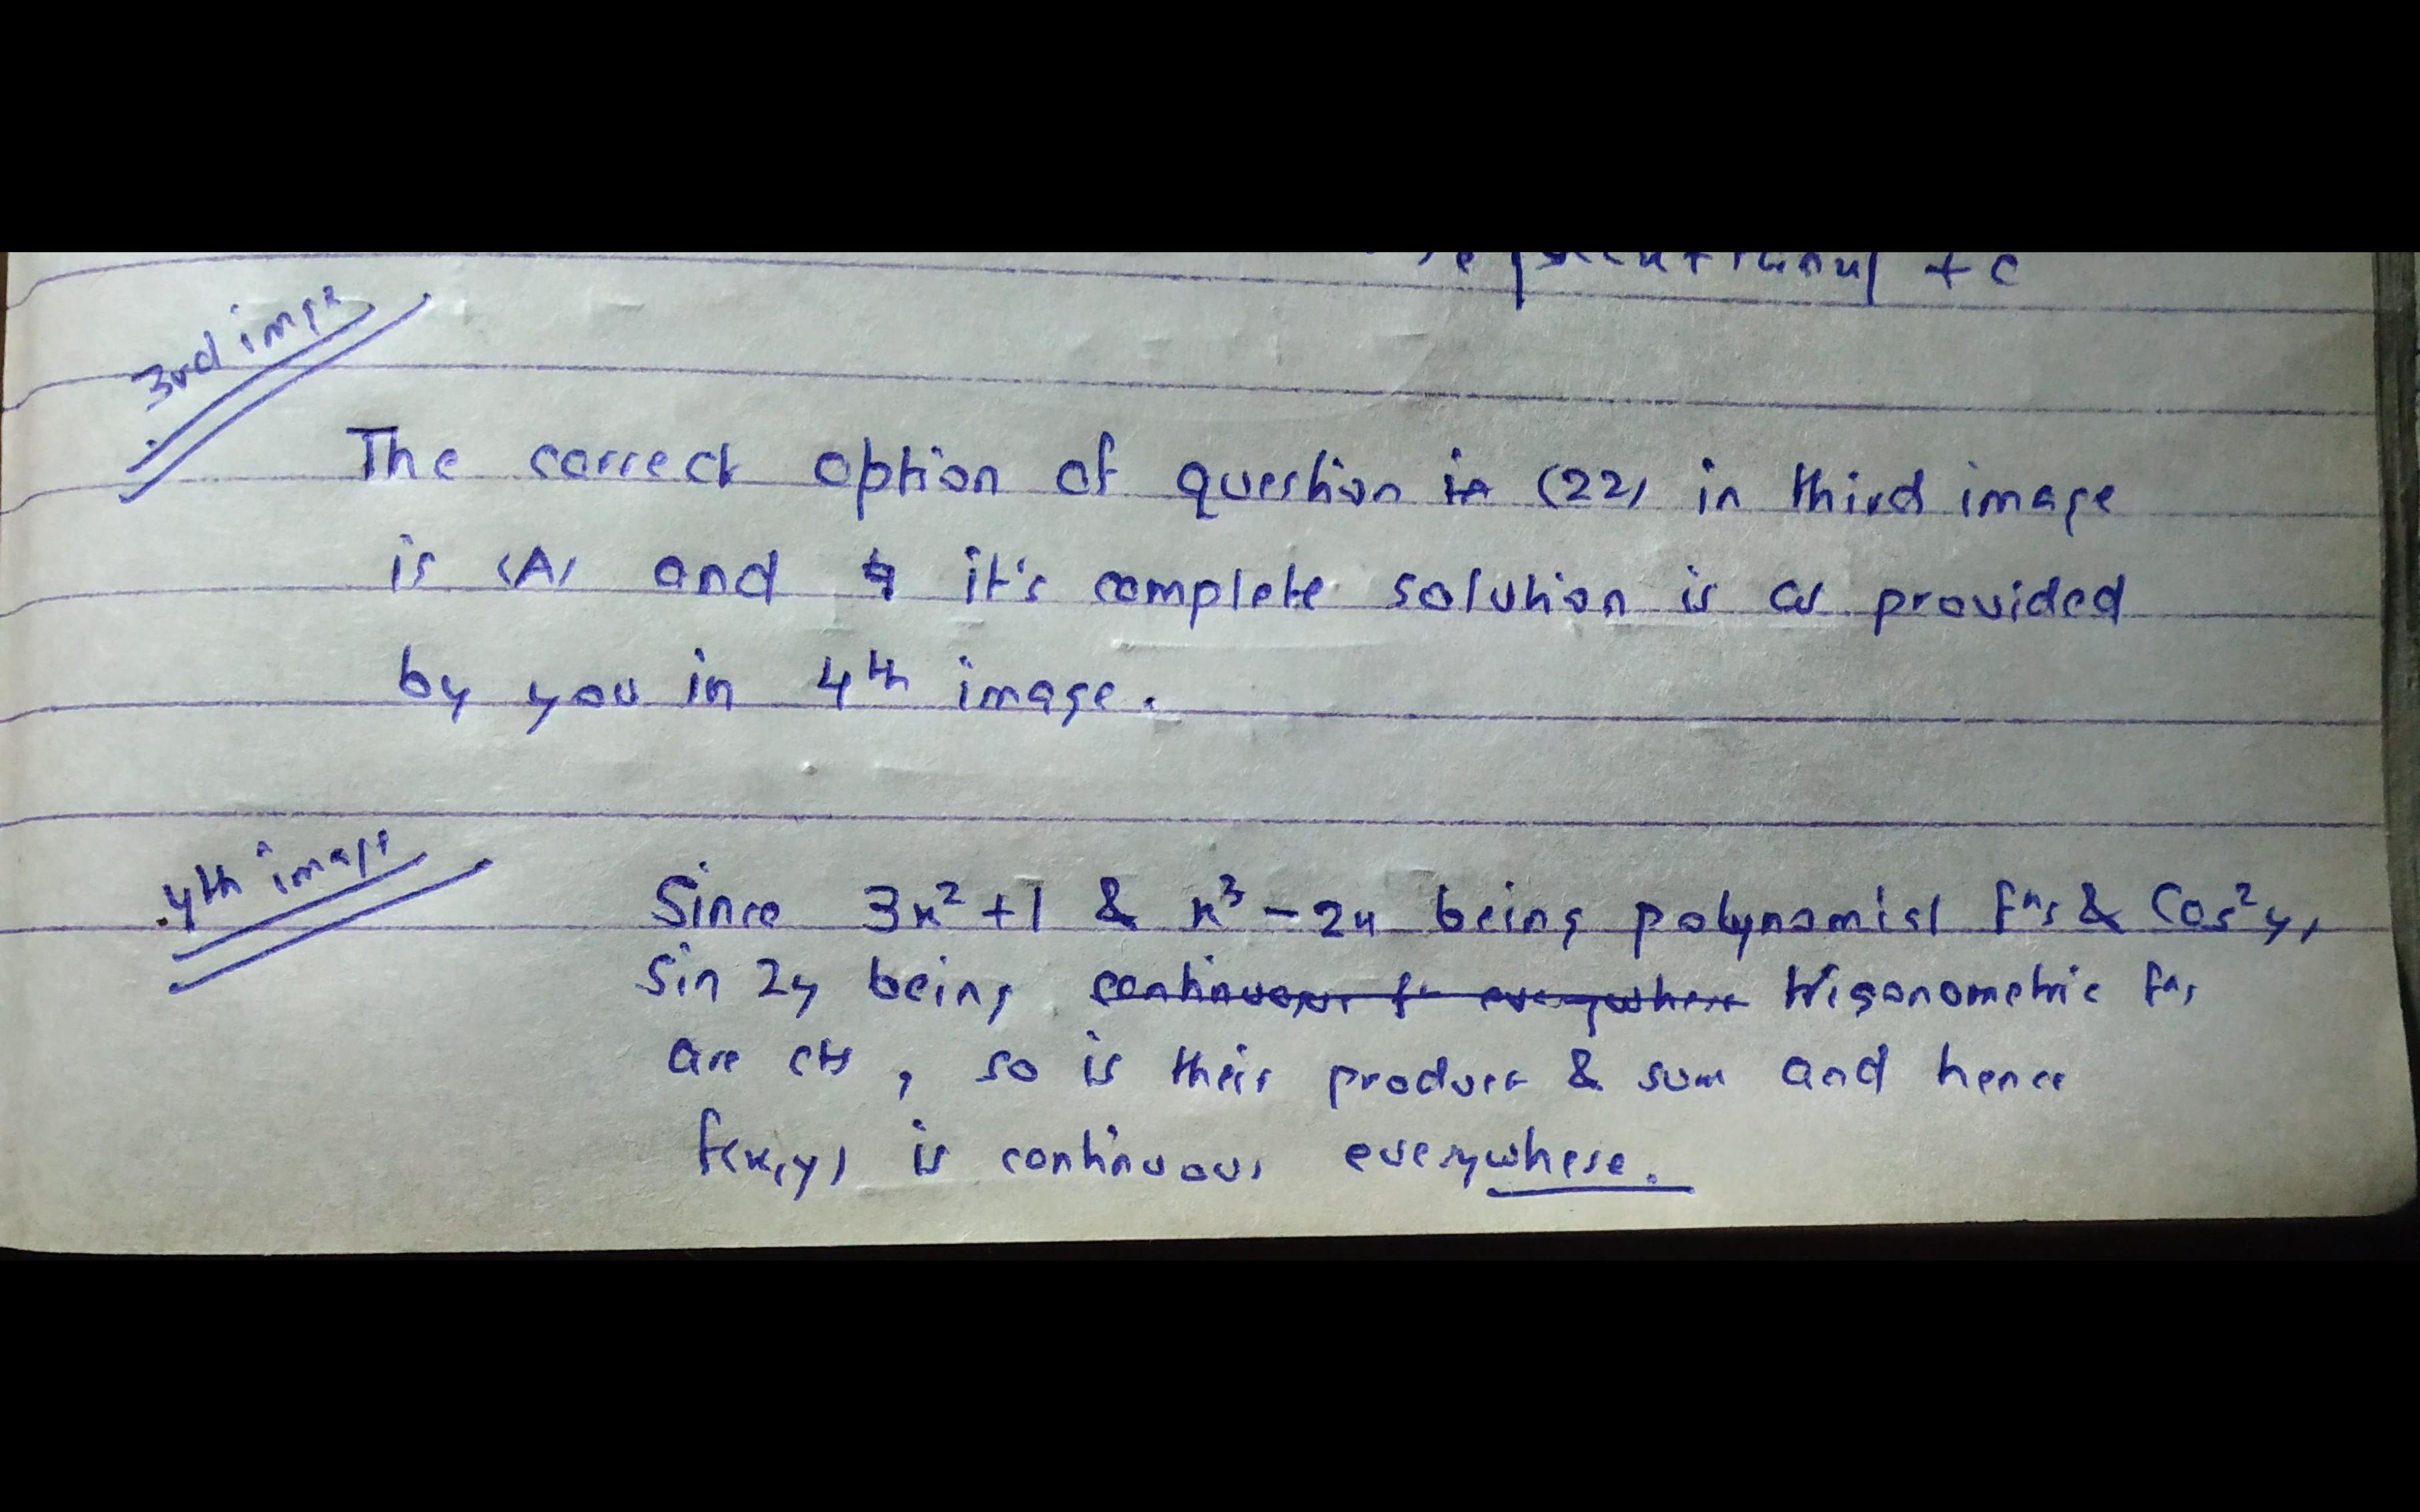 + c
3rd image
The correct option of question in (22) in third image
is (A) and it's complete solution is as provided
by you in 4th image.
4th image
Since 3x² + 1 & x³ - 2x being polynomial fⁿs & Cos²y,
Sin 2y being continuous fⁿ everywhere trigonometric fⁿs
are cts, so is their product & sum and hence
f(x,y) is continuous everywhere.